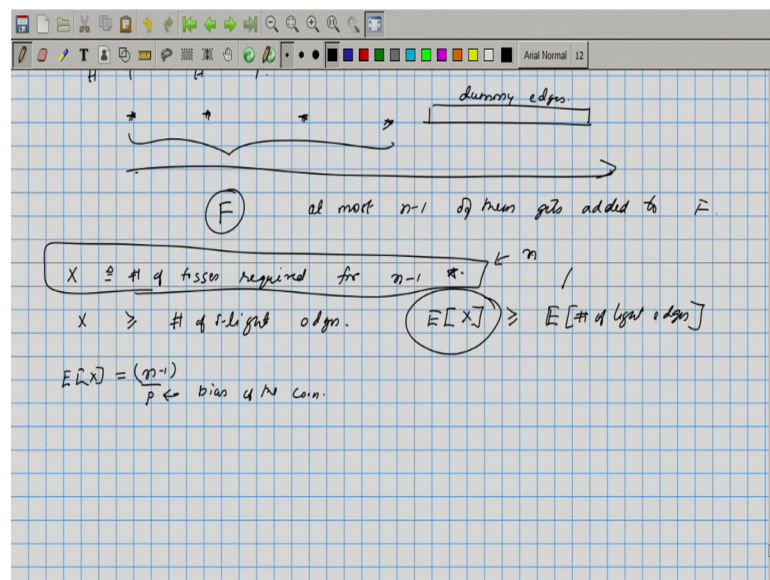 Arial Normal 12
H T H T.
dummy edges.
* * * *
F at most n-1 of them gets added to F.
X ≜ # of tosses required for n-1 *. ← n
X ≥ # of F-light edges. E[X] ≥ E[# of light edges]
E[X] = (n-1)/p ← bias of the coin.